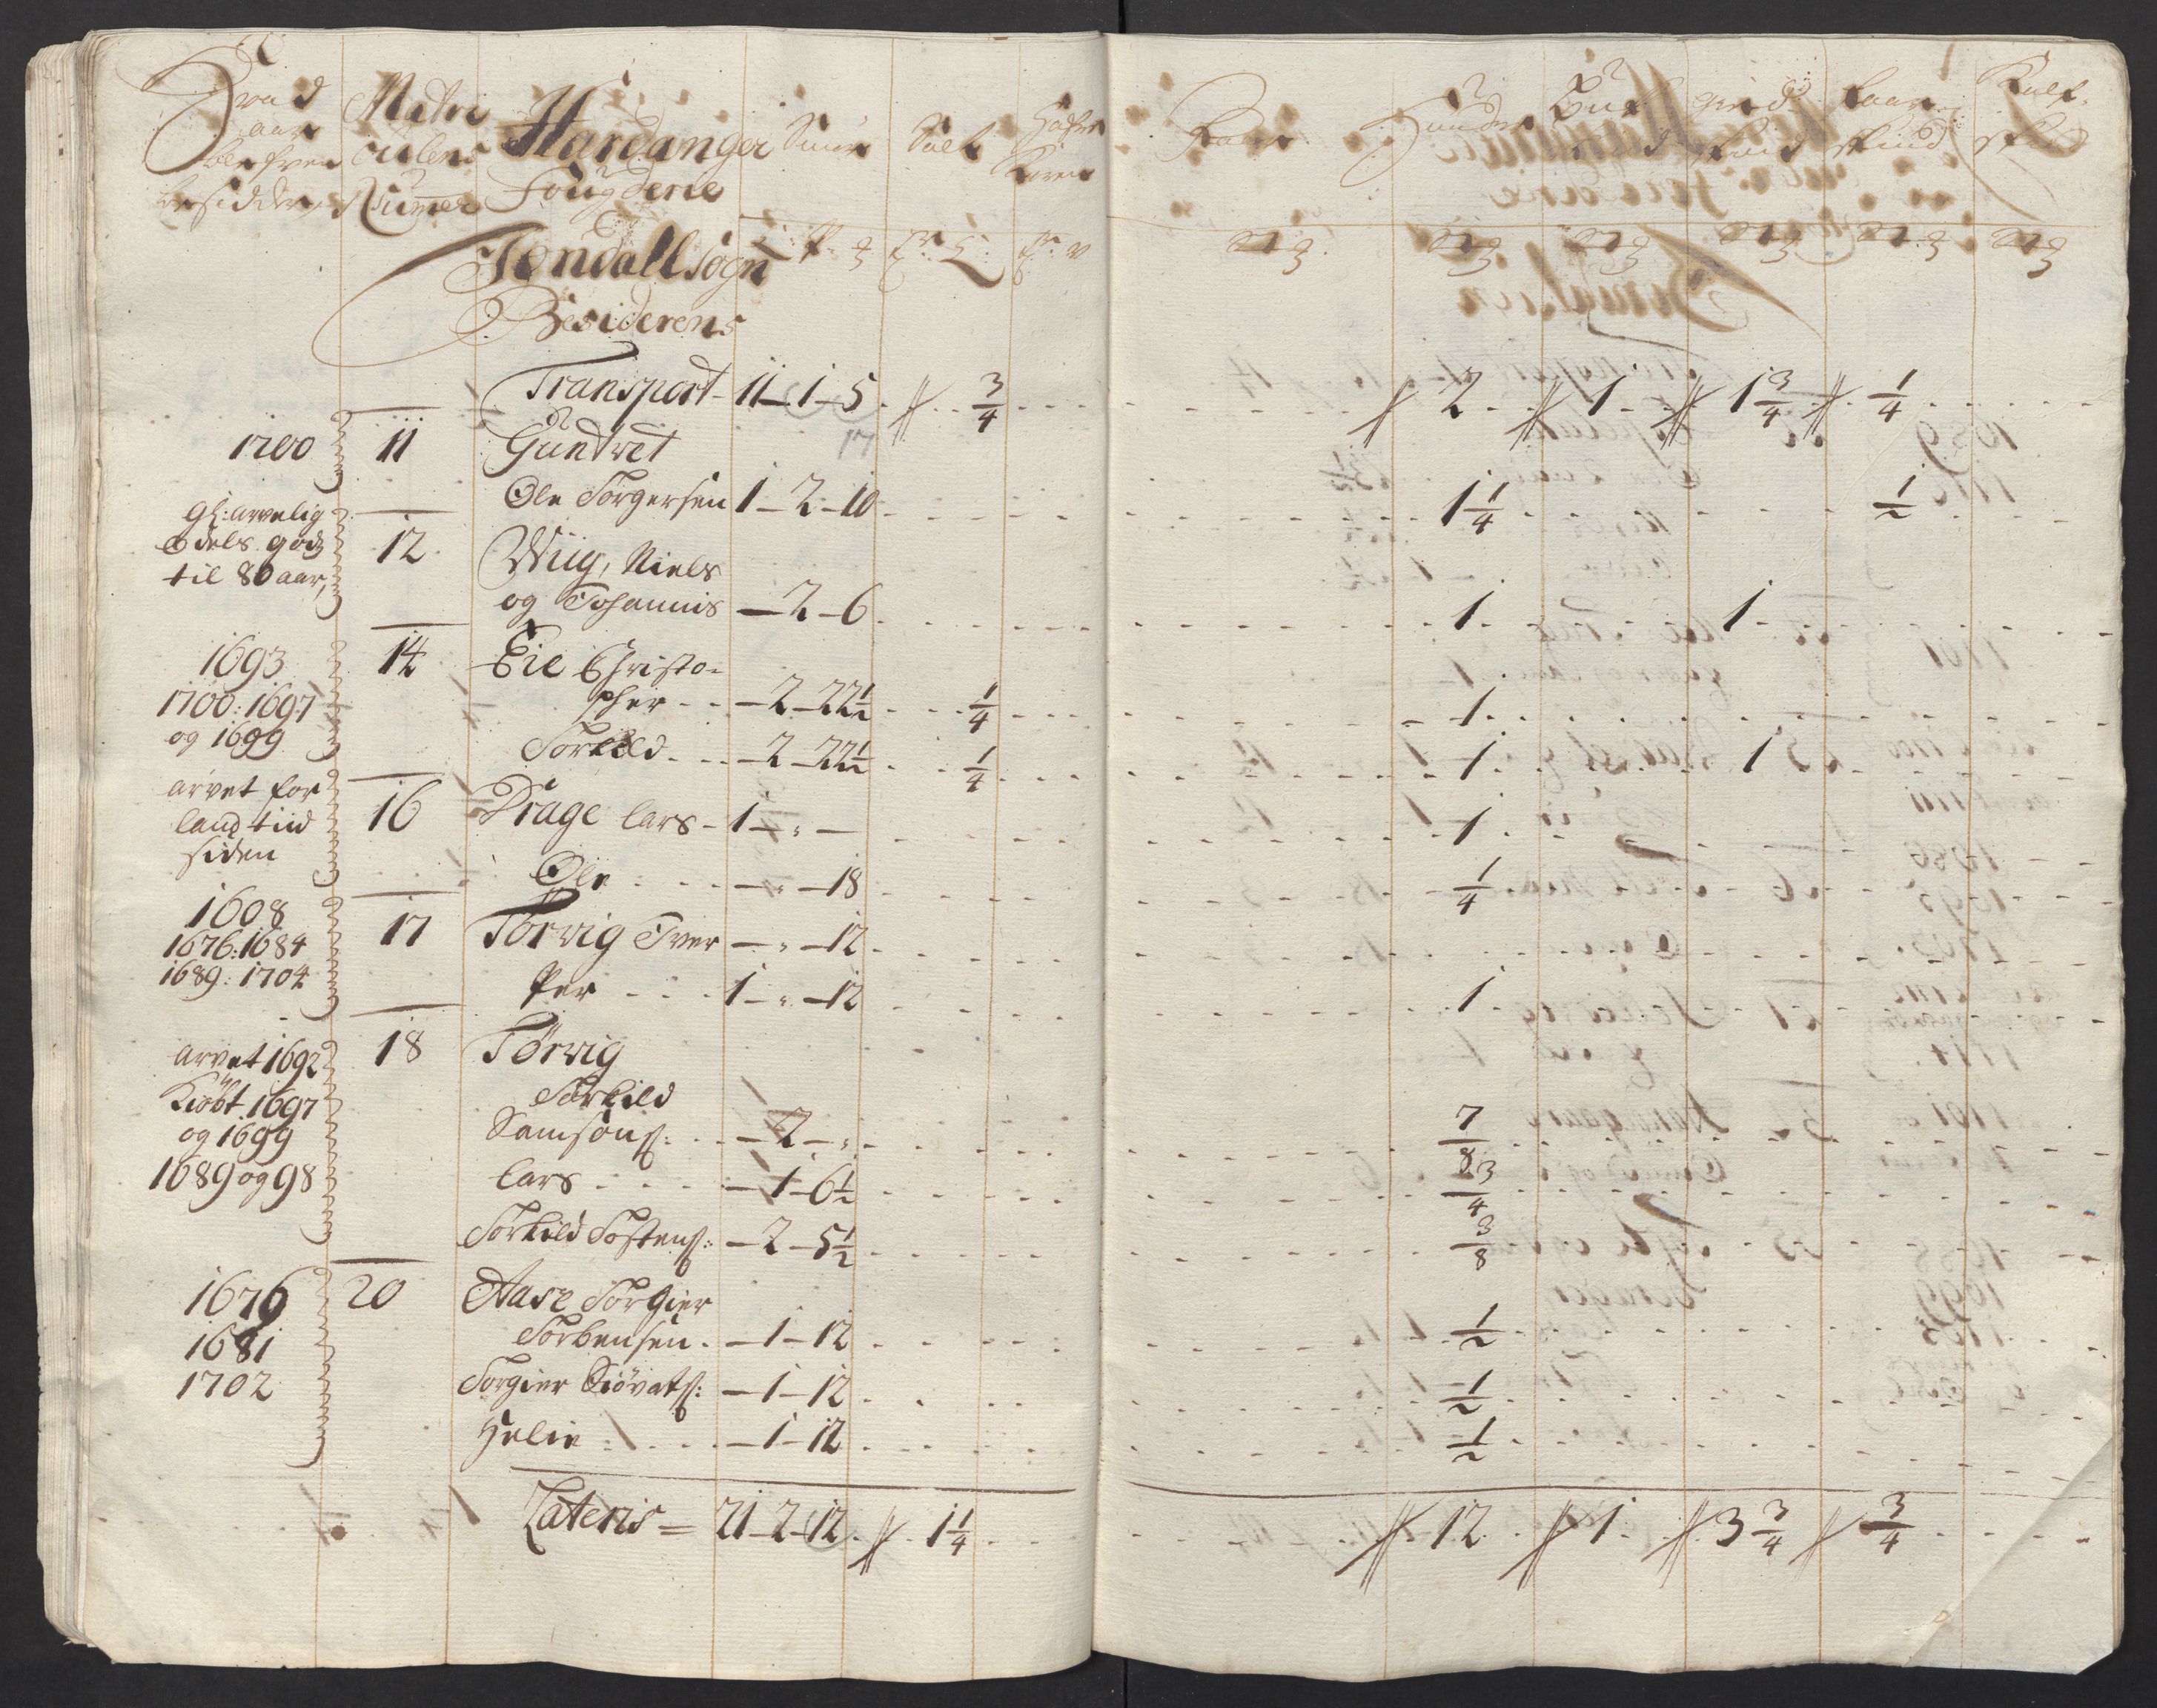 Hvad aar blefven besiddere | Matriculens Numer | Hardanger Fougderie | Smør | Salt | Kaarn
Huuder | Buk skind | giedskind | faar skind | Kalfskind
Jondall sogn
Besiderens
Transport - 11 - 1 - 5 . // . 3/4 . . . // 2 . // 1 . // 1 3/4 . // . 1/4
17
1700 | 11 | Gundvet
Ole Torgersen 1 - 2 - 10 . . . 1 1/4 . . . 1/2
Gl: arvelig
odels godz
til 80 aar,
12 | Wiig, Niels
og Johannis - 2 - 6 . . . 1 . . . 1
1693
1700: 1697
og 1699
14 | Eie Christo-
pher - - - 2 - 22 1/2 . . . 1/4 . . . 1
Torkild . . - 2 - 22 1/2 . . . 1/4 . . . 1 . . . 1
arvet for
lang tiid
siden
16 | Drage Lars - 1 - " - . . . 1
Ole . . . - " - 18 . . . 1/4
1608
1676: 1684
1689: 1704
17 | Torvig Iver - " - 12
Per . . . 1 - " - 12 . . . 1
arvet 1692
Kiøbt 1697
og 1699
1689 og 98
18 | Tørvig
Torkild
Samsøns: . . - 2 - " . . . 7/8
Lars . . . - 1 - 6 1/2 . . . 3/4
Torkild Tostens: - 2 - 5 1/2 . . . 3/8
1676
1681
1702
20 | Aase Torgier
Torbensen . - 1 - 12 . . . 1/2
Torgier Siøvats: - 1 - 12 . . . 1/2
Helie . . . - 1 - 12 . . . 1/2
Lateris = 21 - 2 - 12 . // . 1 1/4 . . . // . 12 . // 1 . // 3 3/4 // 3/4